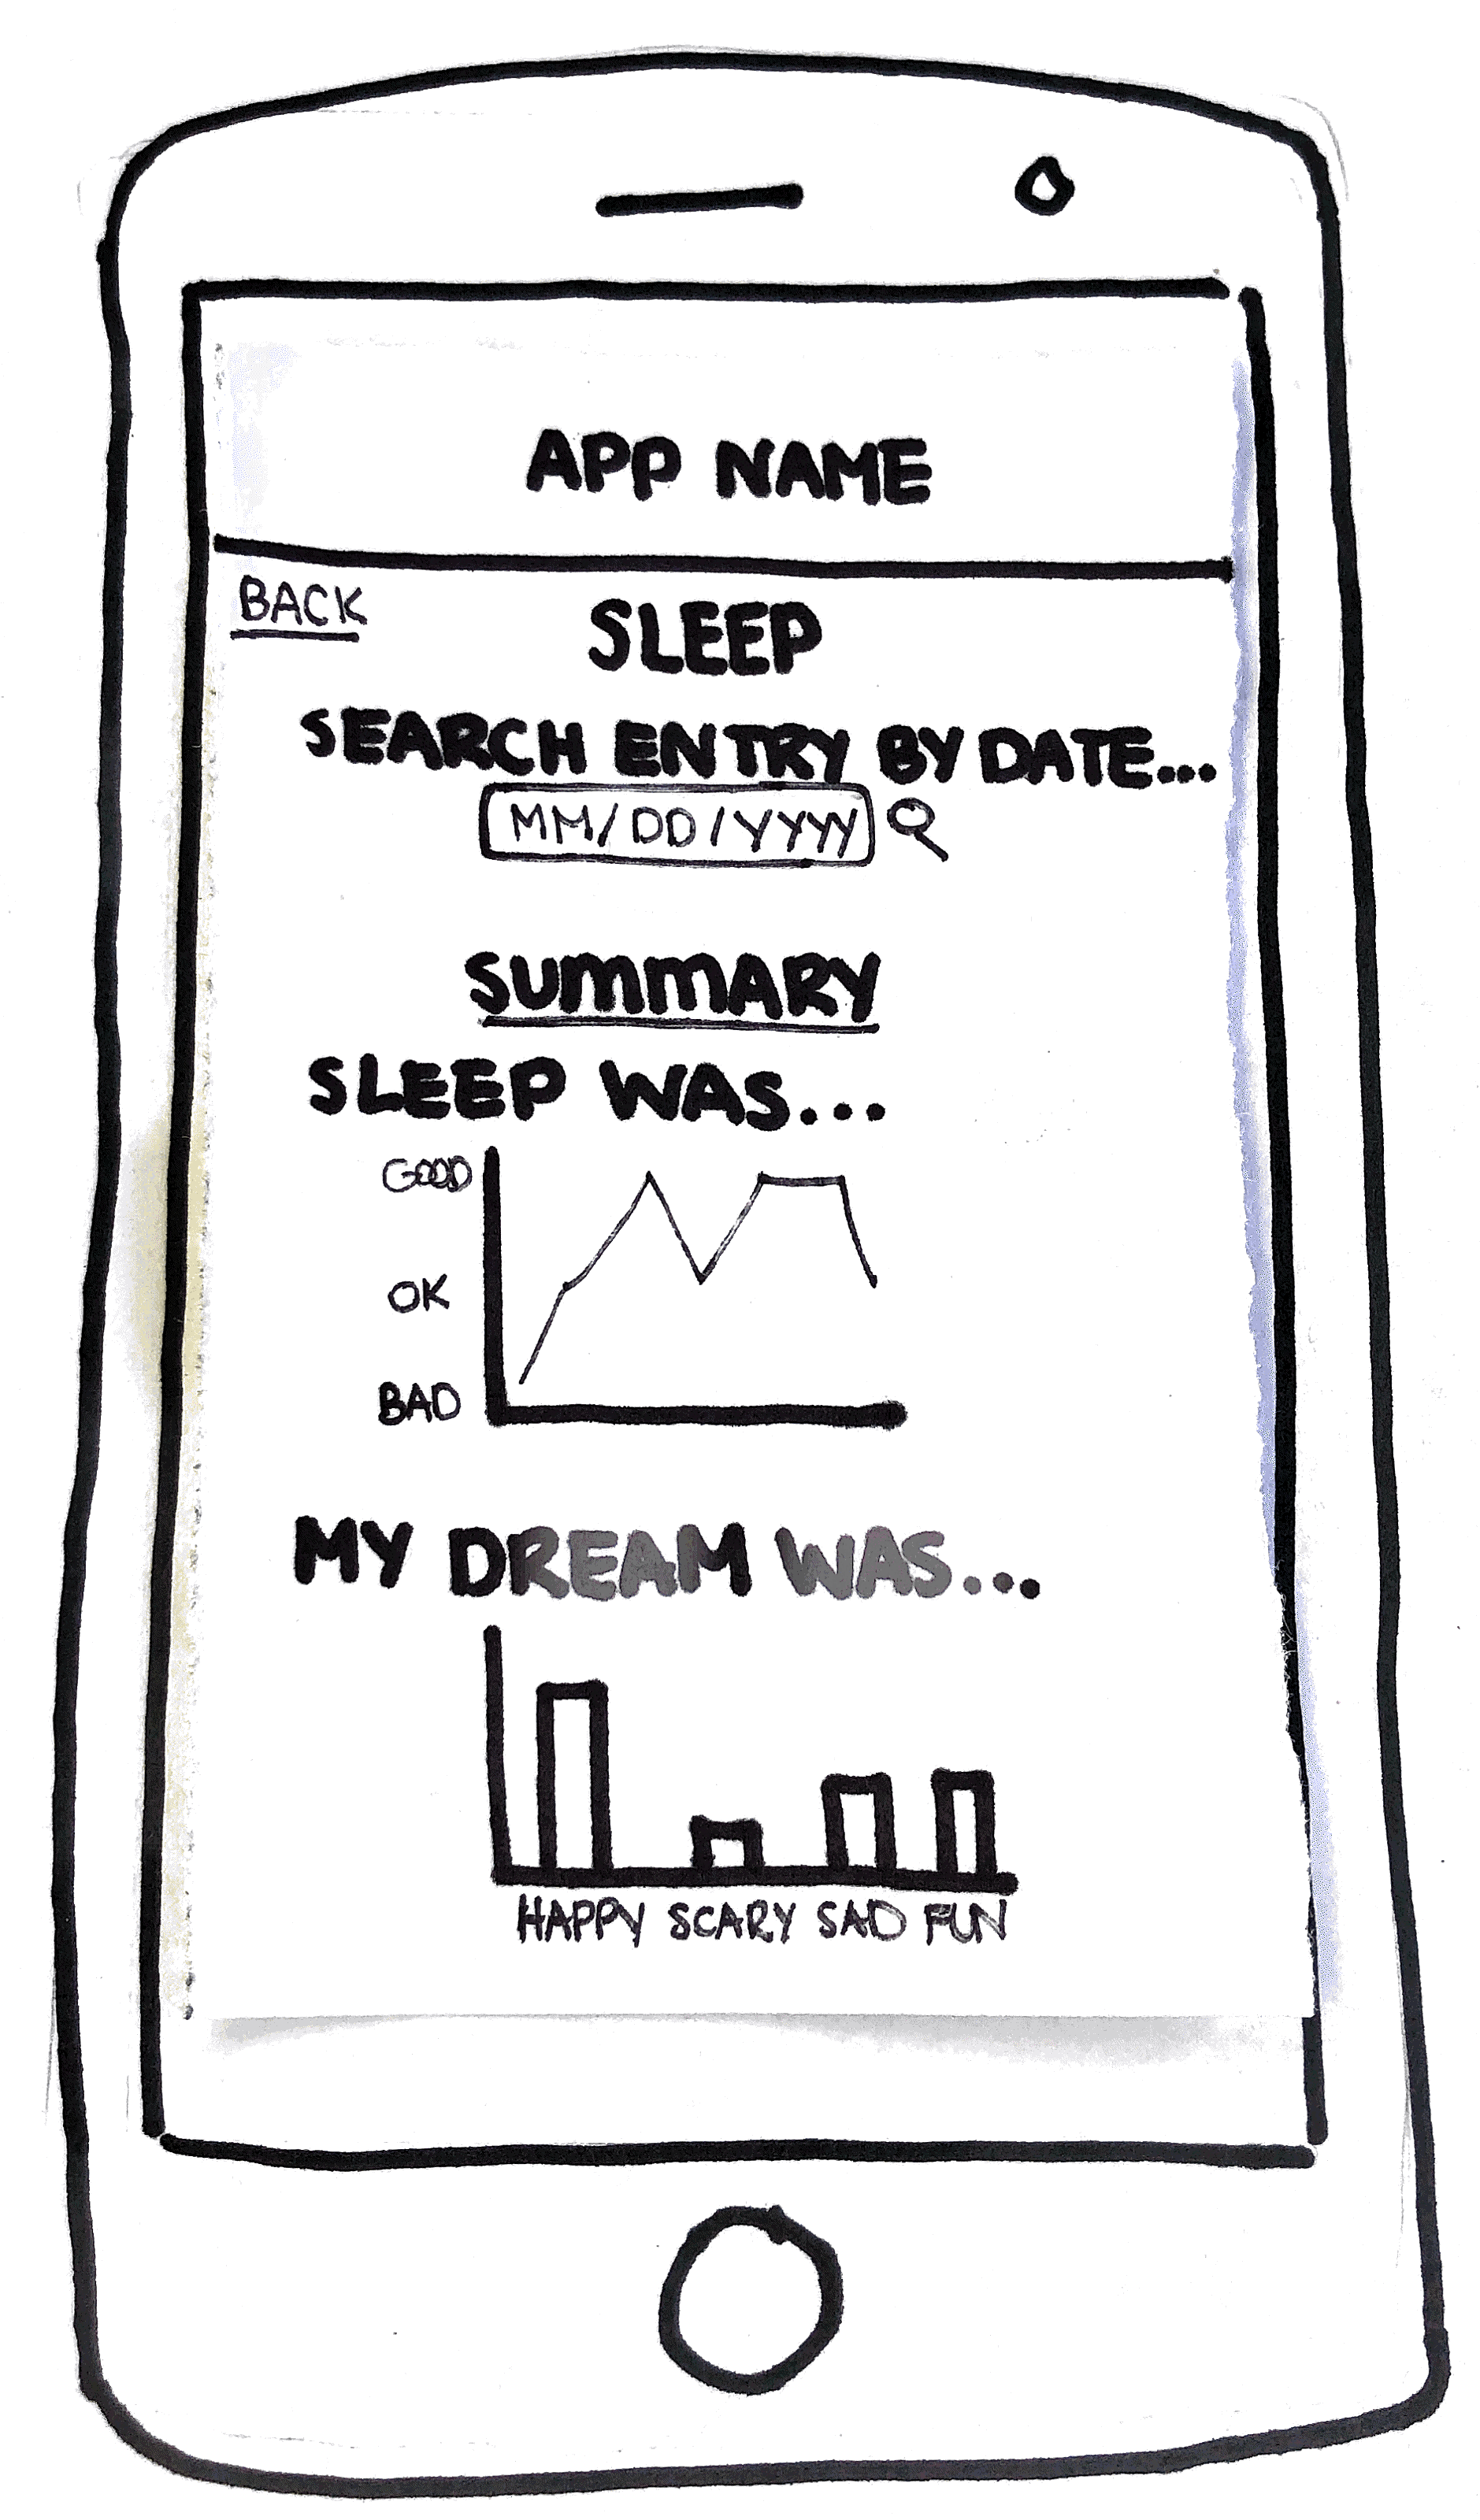 APP NAME
BACK
SLEEP
SEARCH ENTRY BY DATE...
MM/DD/YYYY
SUMMARY
SLEEP WAS...
GOOD
OK
BAD
MY DREAM WAS...
HAPPY SCARY SAD FUN